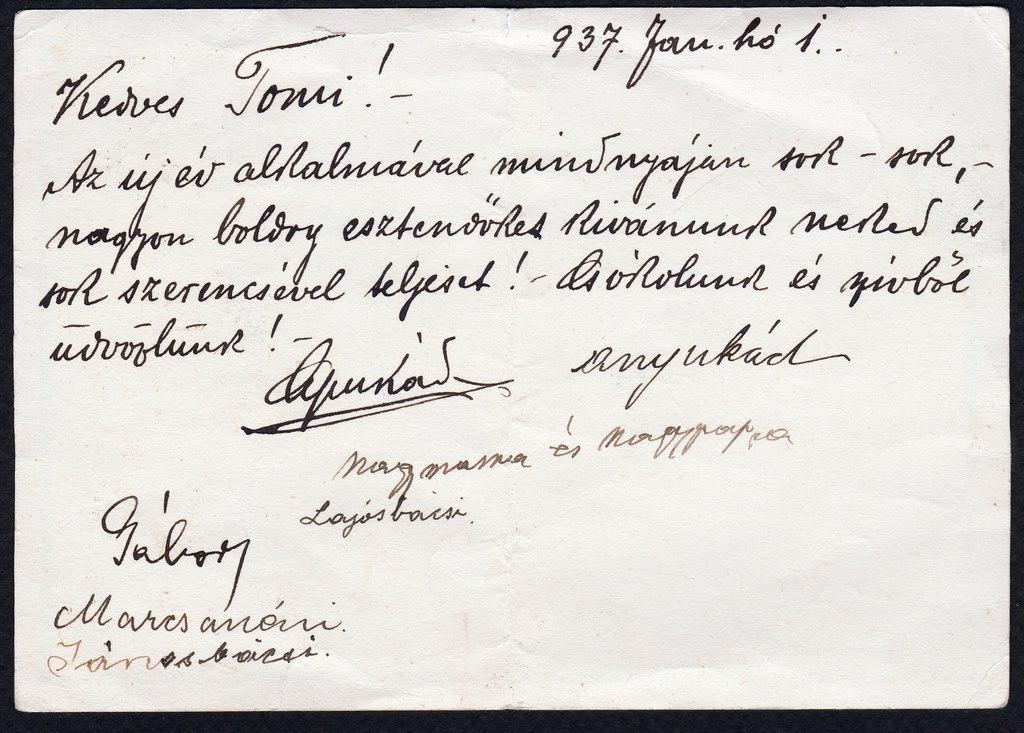 937. Jan. hó 1..
Kedves Tomi! -
Az új év alkalmával mindnyájan sok - sok, -
nagyon boldog esztendőket kivánunk neked és
sok szerencsével teljeset! - Csókolunk és szivből
üdvözlünk! -
Apukád anyukád
Nagymama és Nagypapa
Lajosbácsi.
Gábor
Marcsanéni.
Jánosbácsi.